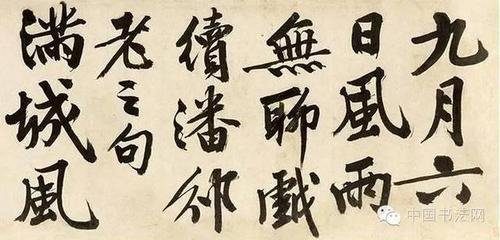 九月六
日風雨
無聊戲
續潘邠
老之句
滿城風
中国书法网